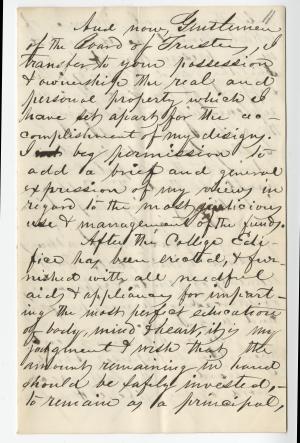 11
And now, Gentlemen
of the Board of Trustees, I
transfer to your possession
& ownership the real and
personal property which I
have set apart for the ac-
complishment of my designs.
I beg permission to
add a brief and general
expression of my views in
regard to the most judicious
use & management of the funds.
After the College Edi-
fice has been erected, & fur-
nished with all needful
aids & appliances for impart-
ing the most perfect education
of body, mind & heart, it is my
judgment & wish that the
amount remaining in hand
should be safely invested,
to remain as a principal,